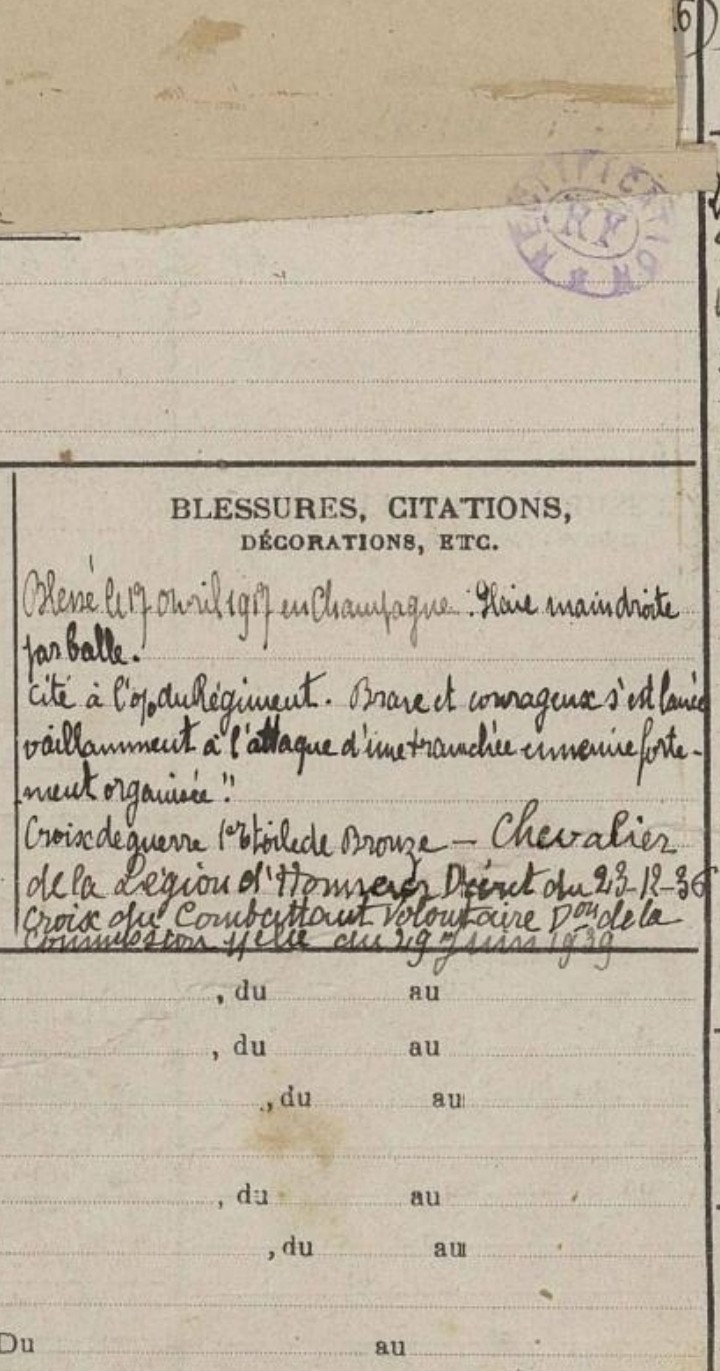 RECTIFICATION
BLESSURES, CITATIONS,
DÉCORATIONS, ETC.
Blessé le 17 avril 1917 en Champagne : Plaie main droite
par balle.
Cité à l'o/ du Régiment. Brave et courageux s'est lancé
vaillamment à l'attaque d'une tranchée ennemie forte-
ment organisée"
Croix de guerre 1ere Etoile de Bronze — Chevalier
de la Légion d'Honneur Décret du 23-12-36
Croix du Combattant Volontaire Don de la
Commission du 29 Juin 1939
, du au
, du au
, du au
, du au
, du au
Du au